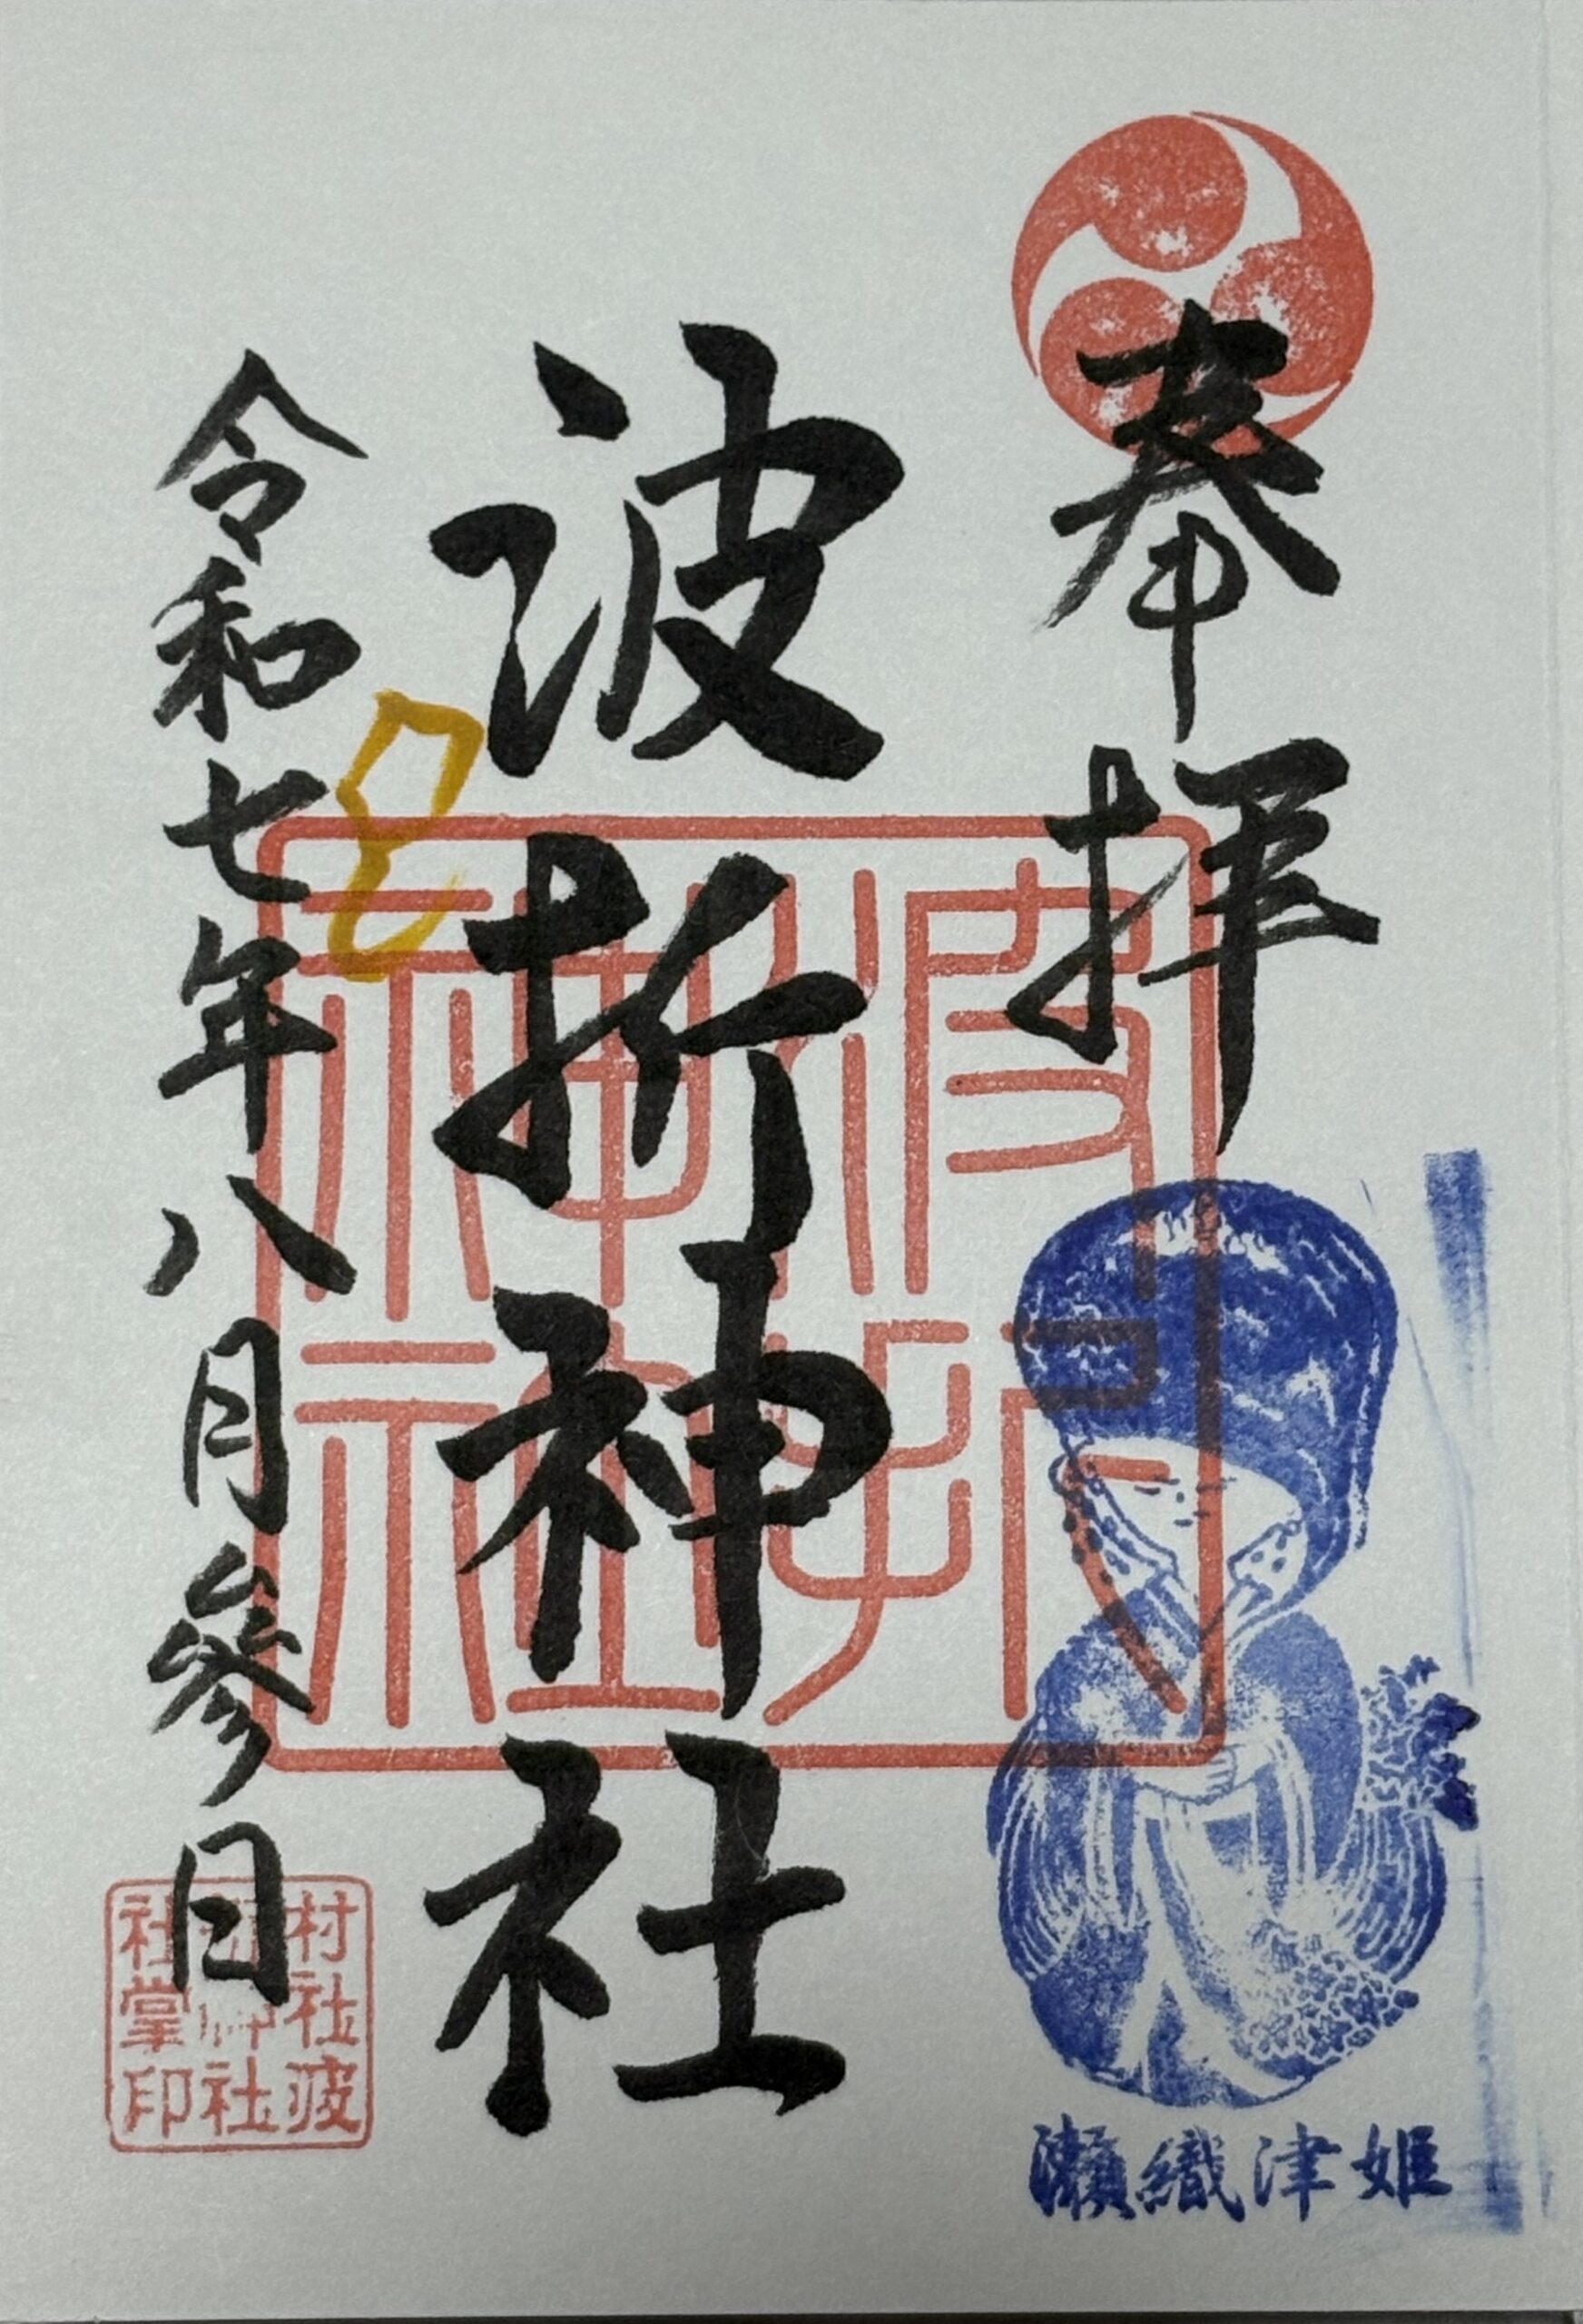 奉拝
波折神社
令和七年八月参日
波折神社
瀬織津姫
村社波
神社
社掌印